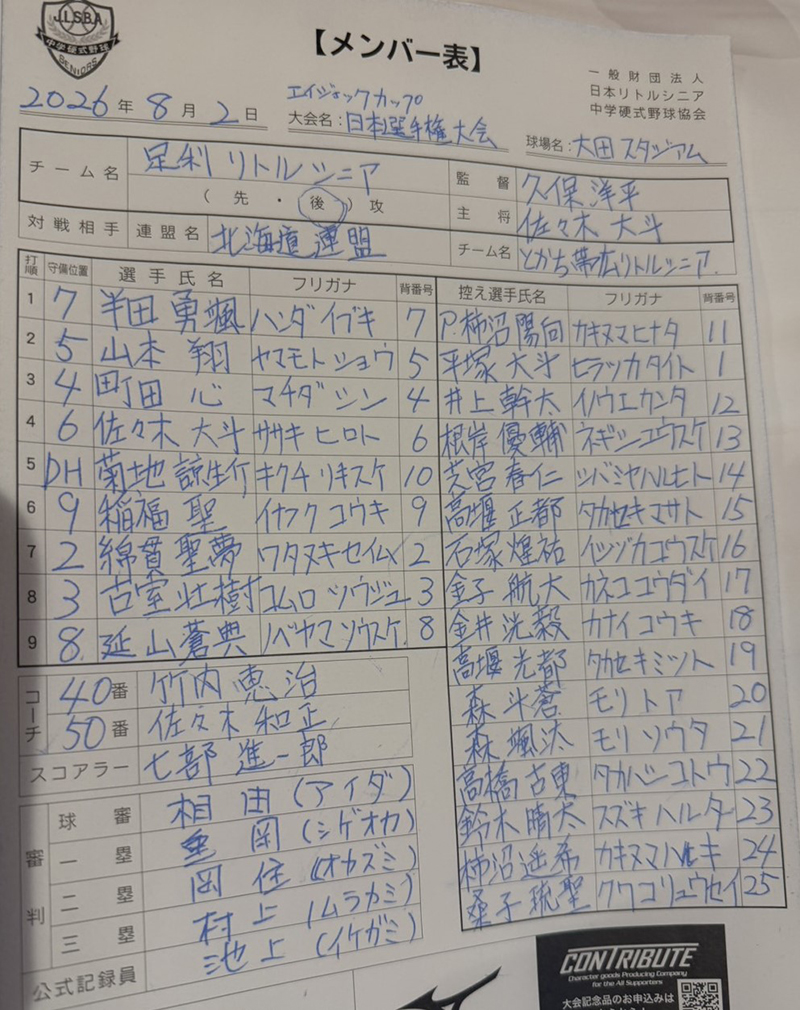 JLSBA
中学硬式野球
SENIORS
【メンバー表】
一般財団法人
日本リトルシニア
中学硬式野球協会
2026年 8月 2日
エイジェックカップ
大会名：日本選手権大会
球場名：大田スタジアム
チーム名 足利リトルシニア
（先・後）攻
監督 久保洋平
主将 佐々木大斗
対戦相手 連盟名 北海道連盟 チーム名 とかち帯広リトルシニア.
打順 守備位置 選手氏名 フリガナ 背番号
1 7 半田勇颯 ハンダイブキ 7
2 5 山本翔 ヤマモトショウ 5
3 4 町田心 マチダシン 4
4 6 佐々木大斗 ササキヒロト 6
5 DH 菊地諒生介 キクチリキスケ 10
6 9 稲福聖 イナフクコウキ 9
7 2 綿貫聖夢 ワタヌキセイム 2
8 3 古室壮樹 コムロソウジュ 3
9 8 延山蒼典 ノベヤマソウスケ 8
控え選手氏名 フリガナ 背番号
P.柿沼陽向 カキヌマヒナタ 11
平塚大斗 ヒラツカタイト 1
井上幹太 イノウエカンタ 12
根岸優輔 ネギシユウスケ 13
芝宮春仁 シバミヤハルヒト 14
高堰正都 タカセキマサト 15
石塚煌祐 イシヅカコウスケ 16
金子航大 カネココウダイ 17
金井洸毅 カナイコウキ 18
高堰光都 タカセキミツト 19
森斗蒼 モリトア 20
森颯汰 モリソウタ 21
高橋古東 タカハシコトウ 22
鈴木晴太 スズキハルタ 23
柿沼遥希 カキヌマハルキ 24
桑子琉聖 クワコリュウセイ 25
コーチ 40番 竹内恵治
50番 佐々木和正
スコアラー 七部進一郎
審判
球審 相田（アイダ）
一塁 重岡（シゲオカ）
二塁 岡住（オカズミ）
三塁 村上（ムラカミ）
池上（イケガミ）
公式記録員
CONTRIBUTE
Character goods Producing Company
for the All Supporters
大会記念品のお申込みは